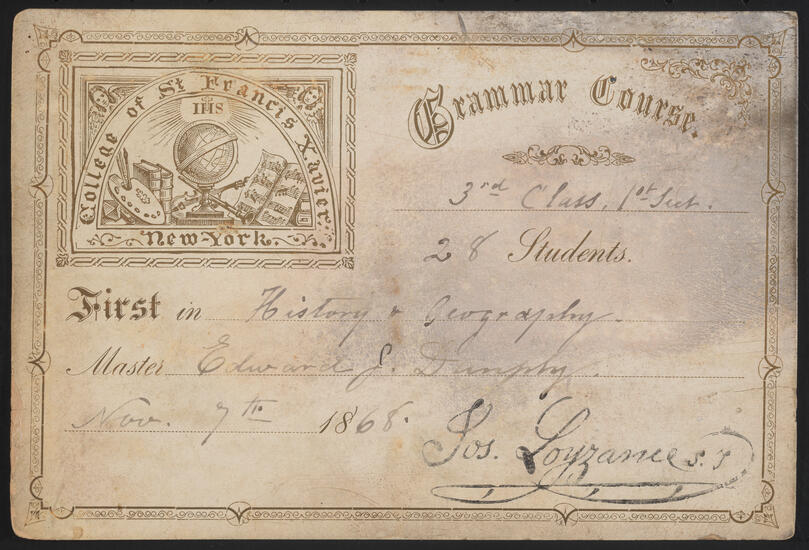 College of St Francis Xavier.
IHS
New-York.
Grammar Course.
3rd Class, 1st Sect.
28 Students.
First in History & Geography.
Master Edward J. Dunphy.
Nov. 7th 1868.
Jos. Loyzance S. J